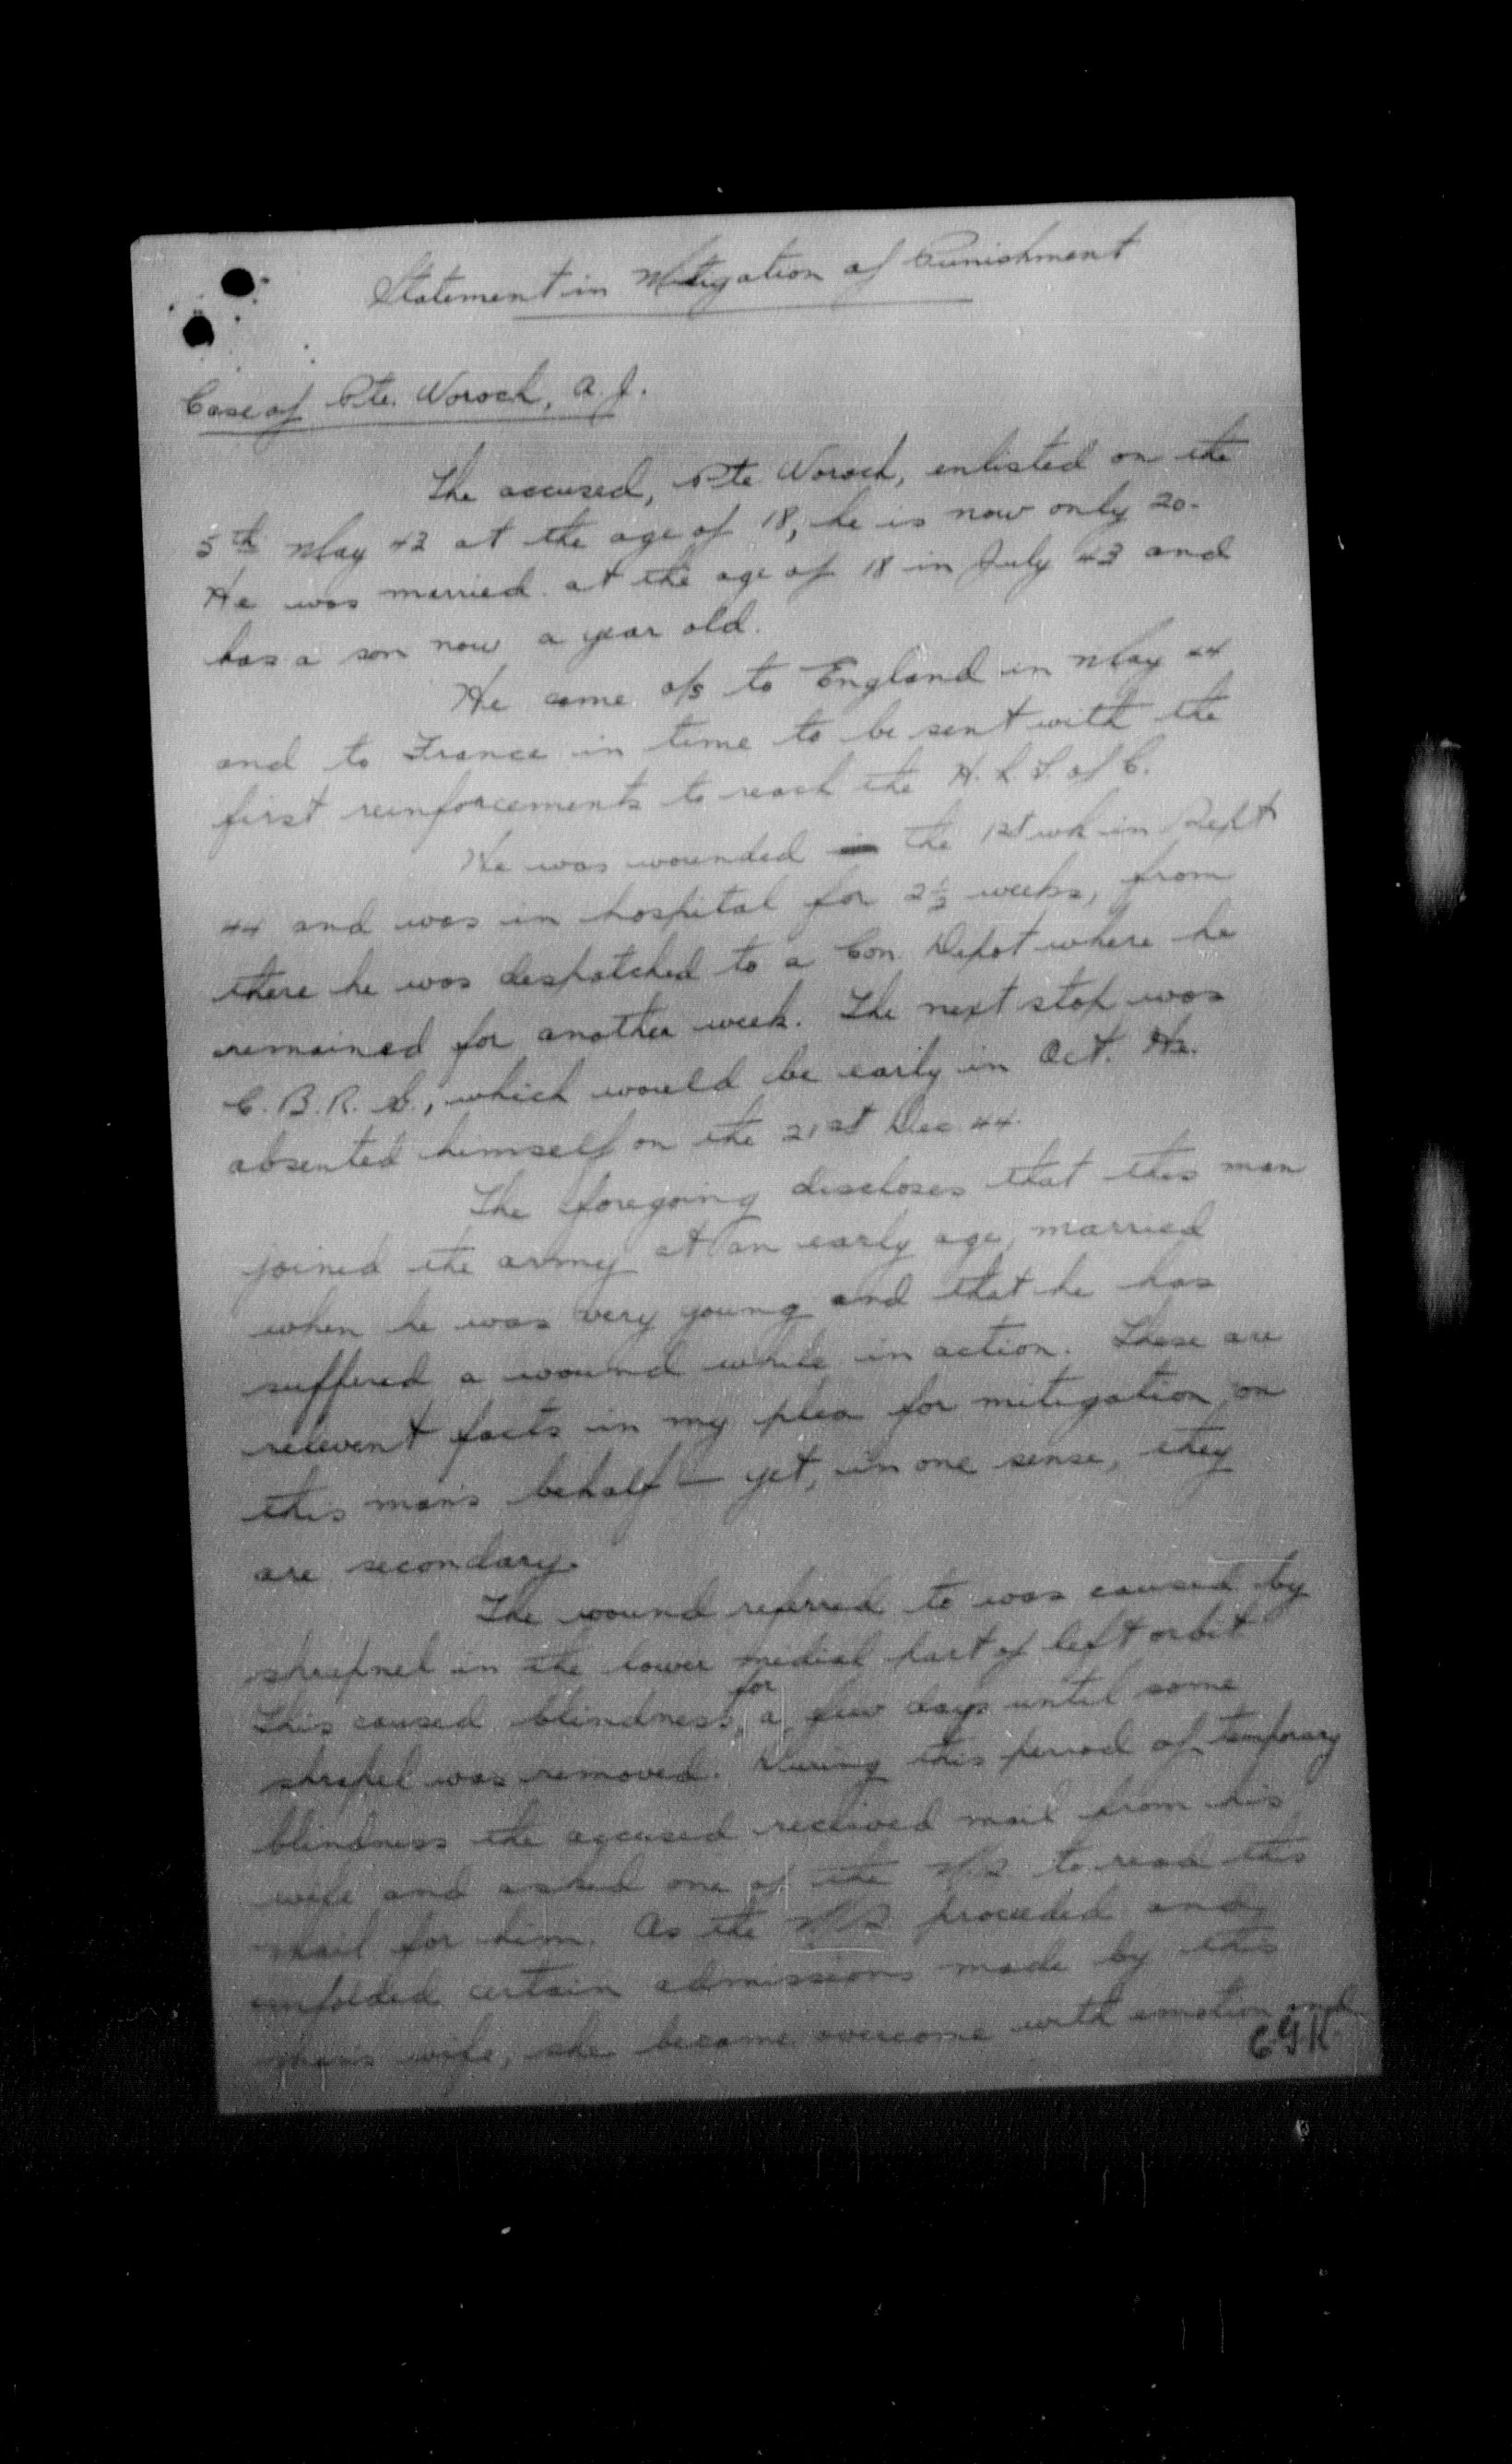 Statement in Mitigation of Punishment
Case of Pte. Woroch, A. J.
The accused, Pte Woroch, enlisted on the
5th May 43 at the age of 18, he is now only 20.
He was married at the age of 18 in July 43 and
has a son now a year old.
He came o/s to England in May 44
and to France in time to be sent with the
first reinforcements to reach the H. L. I. of C.
He was wounded the 1st wk in Sept
44 and was in hospital for 2½ weeks, from
there he was despatched to a Con. Depot where he
remained for another week. The next stop was
C. B. R. D., which would be early in Oct. He
absented himself on the 21st Dec. 44.
The foregoing discloses that this man
joined the army at an early age, married
when he was very young and that he has
suffered a wound while in action. These are
relevent facts in my plea for mitigation on
this man's behalf - yet, in one sense, they
are secondary.
The wound referred to was caused by
shrapnel in the lower medial part of left orbit
This caused blindness, for a few days until some
shrapel was removed. During this period of temporary
blindness the accused received mail from his
wife and asked one of the to read this
mail for him. As the proceeded and
unfolded certain admissions made by this
man's wife, she became overcome with emotion and